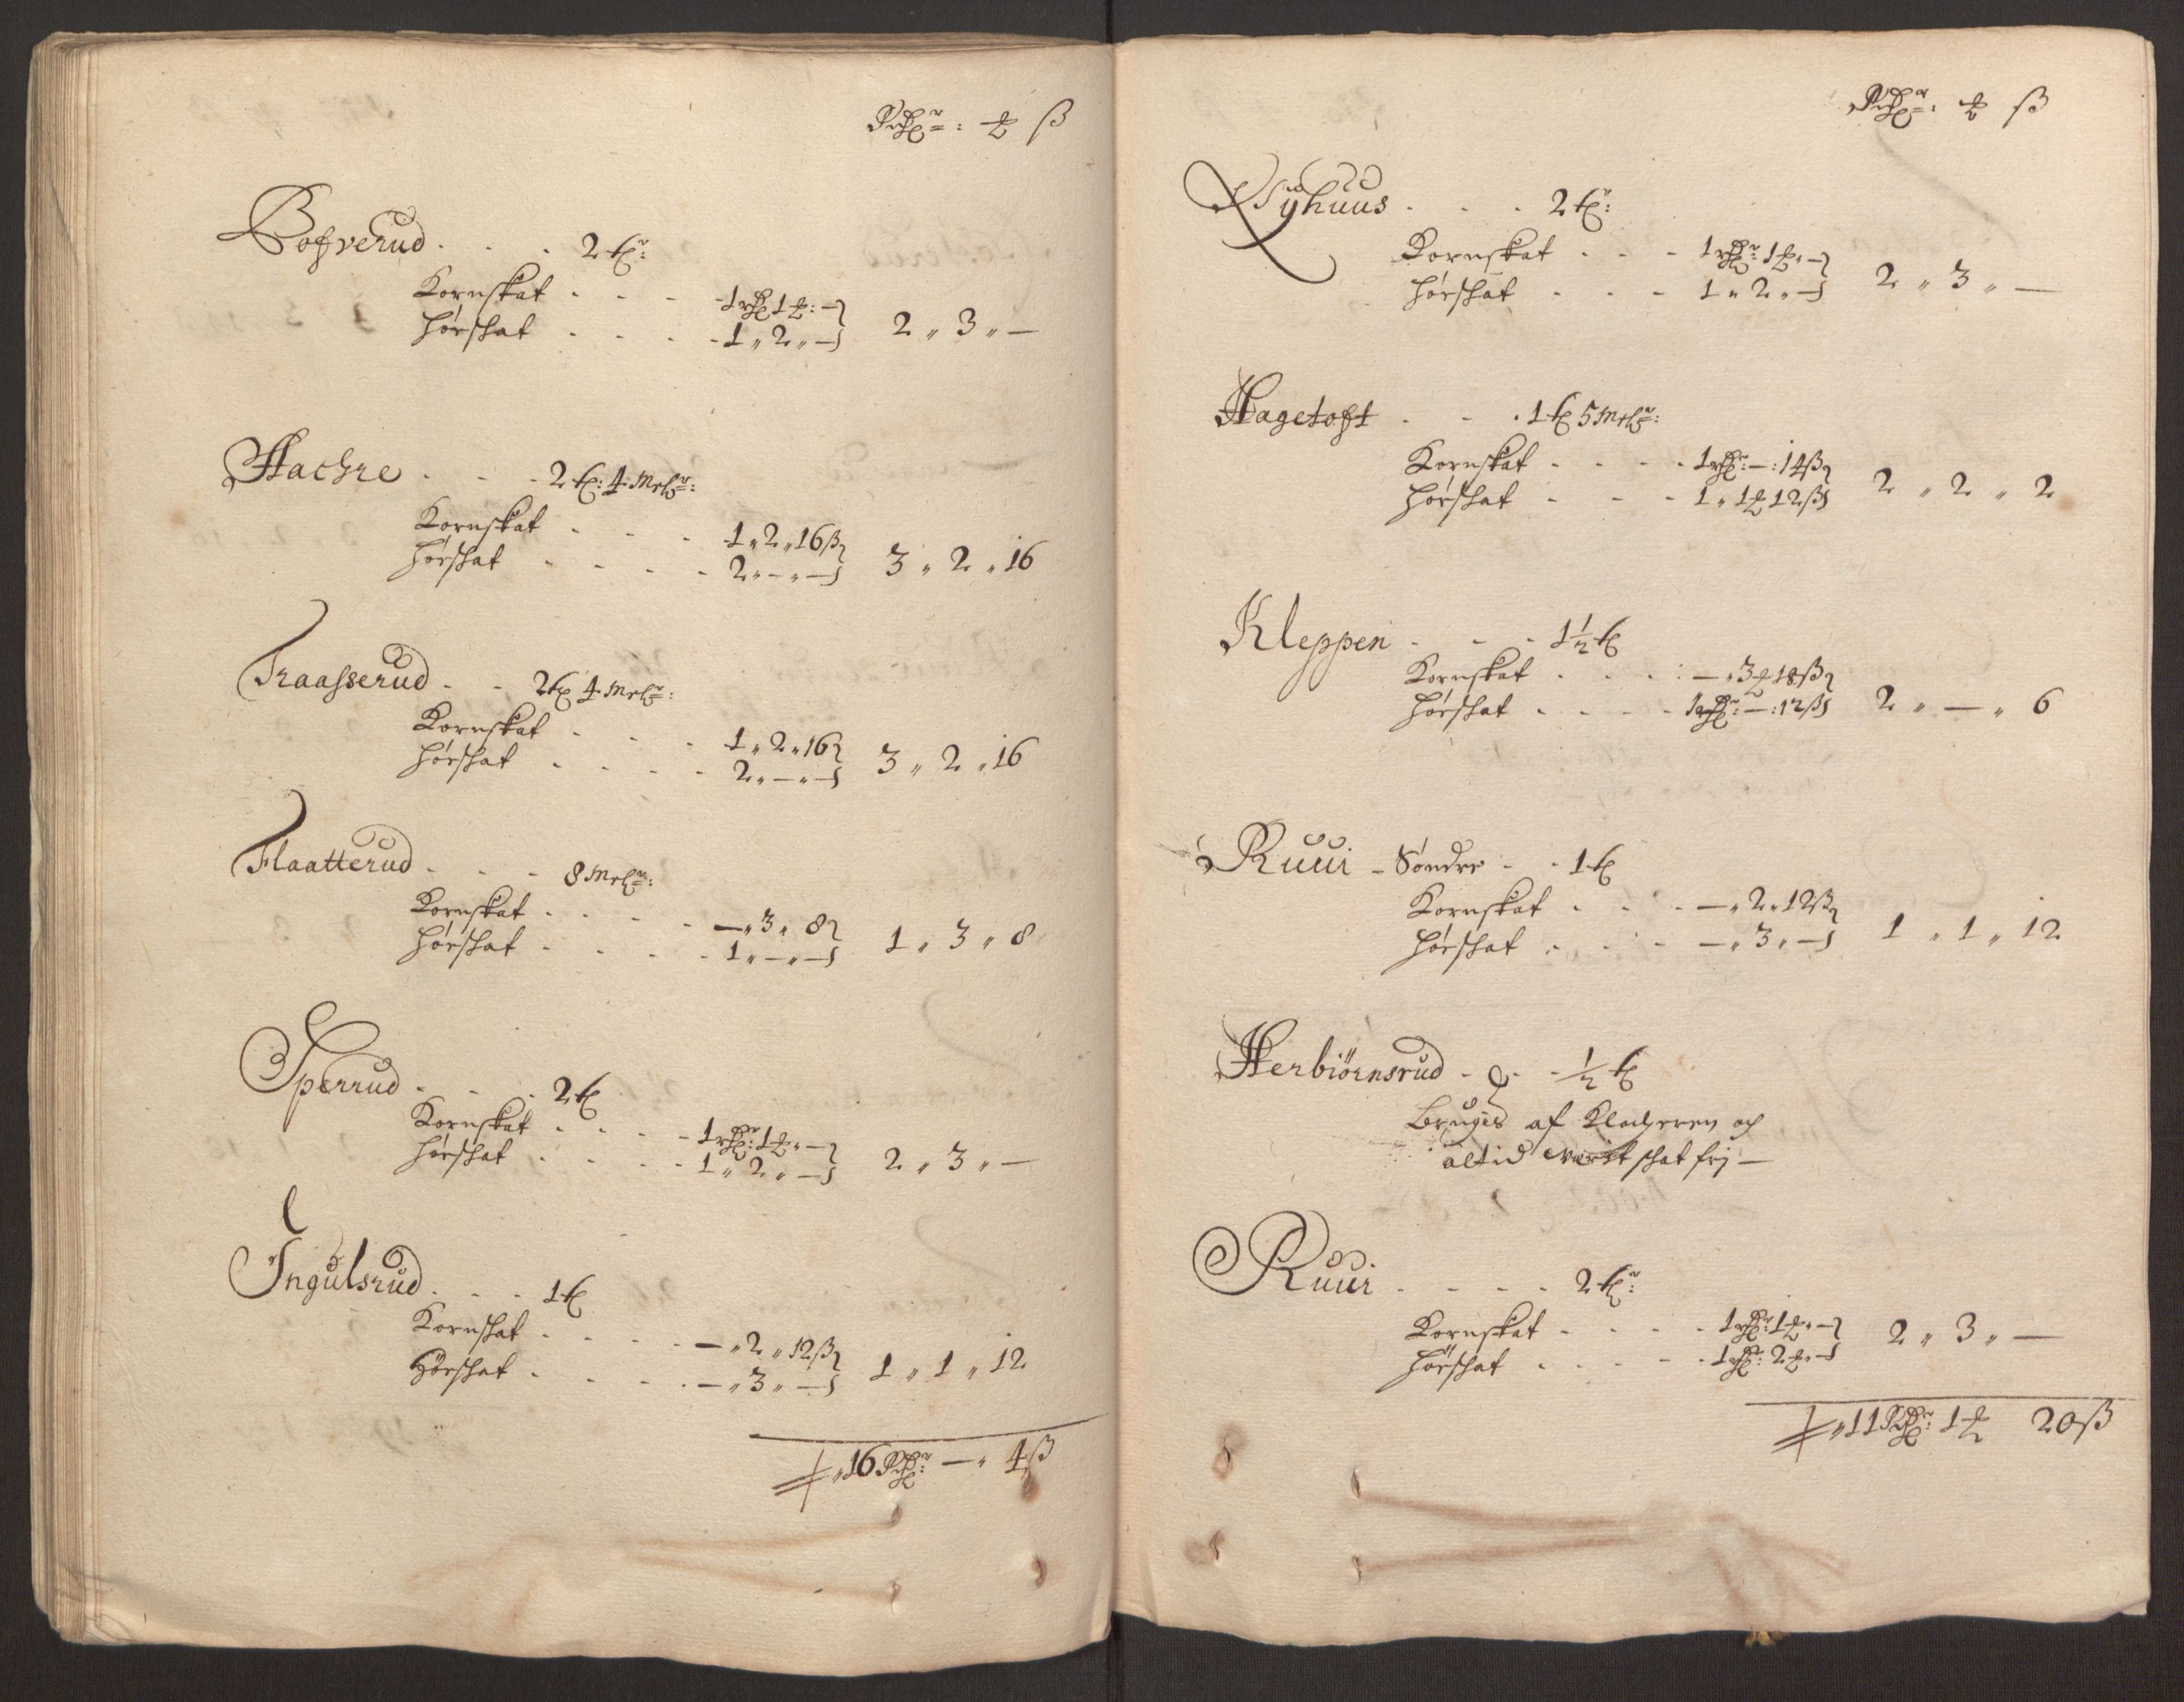 Rdr: ℔ ß
Bofverud . . . 2 ℔r:
Kornskat . . . 1 rdr 1 ℔: —
Hørskat . . . 1 „ 2 „ — 2 „ 3 „ —
Hachre . . . 2 ℔: 4 Melr:
Kornskat . . . 1 „ 2 „ 16 ß
Hørskat . . . . 2 „ — „ — 3 „ 2 „ 16
Traasserud . . 2 ℔ 4 Melr:
Kornskat . . . 1 „ 2 „ 16
Hørskat . . . . 2 „ — „ — 3 „ 2 „ 16
Flaatterud . . . 8 Melr:
Kornskat . . . . — „ 3 „ 8
Hørskat . . . . 1 „ — „ — 1 „ 3 „ 8
Sperrud . . . 2 ℔
Kornskat . . . . 1 rdr: 1 ℔ „ —
Hørskat . . . . 1 „ 2 „ — 2 „ 3 „ —
Ingulsrud . . . 1 ℔
Kornskat . . . . — „ 2 „ 12 ß
Hørskat . . . . — „ 3 „ — 1 „ 1 „ 12
„ 16 Rdr: — „ 4 ß
Rdr: ℔ ß
Nÿhuus . . . 2 ℔r:
Kornskat . . . 1 rdr 1 ℔ „ —
Hørskat . . . 1 „ 2 „ — 2 „ 3 „ —
Hagetoft . . . 1 ℔ 5 Melr:
Kornskat . . . . 1 rdr: — : 14 ß
Hørskat . . . 1 „ 1 ℔ 12 ß 2 „ 2 „ 2
Kleppen . . . 1 ½ ℔
Kornskat . . . : — „ 3 ℔ 18 ß
Hørskat . . . . 1 rdr: — : 12 ß 2 „ — „ 6
Ruui - Søndre . . 1 ℔
Kornskat . . . — „ 2 „ 12 ß
Hørskat . . . — „ 3 „ — 1 „ 1 „ 12
Herbiörnsrud . . . ½ ℔
Bruges af Klocheren och
altid værit skat frj —
Ruui . . . . 2 ℔r:
Kornskat . . . . 1 rdr: 1 ℔ „ —
Hørskat . . . . 1 rdr: 2 ℔ „ — 2 „ 3 „ —
„ 11 Rdr: 1 ℔ 20 ß